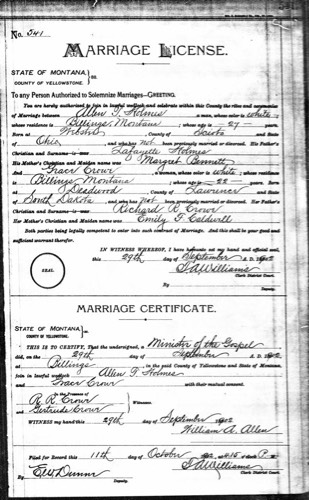 No. 541
MARRIAGE LICENSE.
STATE OF MONTANA,
COUNTY OF YELLOWSTONE. } ss.
To any Person Authorized to Solemnize Marriages—GREETING.
You are hereby authorized to join in lawful wedlock and celebrate within this County the rites and ceremonies
of Marriage between Allen T. Holmes a man, whose color is white
whose residence is Billings, Montana, whose age is 27
Born at County of Scioto and State
of Ohio, and who has not been previously married or divorced. His Father's
Christian and Surname Lafayette Holmes
His Mother's Christian and Maiden name was Margret Bennett
and Grace Crowr a woman, whose color is white; whose residence is
Billings Montana; whose age is 22
at Deadwood, County of Lawrence and State of
South Dakota, and who has not been previously married or divorced. Her Father's
Christian and Surname was Richard R. Crowr
Her Mother's Christian and Maiden name was Emily F. Caldwell
Both parties being legally competent to enter into such contract of Marriage. And this shall be your good and
sufficient warrant therefor.
IN WITNESS WHEREOF, I have hereunto set my hand and official seal,
this 29th day of September A. D.
SEAL
Williams
Clerk District Court.
By
Deputy.
MARRIAGE CERTIFICATE.
STATE OF MONTANA,
COUNTY OF YELLOWSTONE. } ss.
THIS IS TO CERTIFY, That the undersigned, a Minister of the Gospel
did, on the 29th day of September A. D.
at Billings in the said County of Yellowstone and State of Montana,
join in lawful wedlock Allen T. Holmes
and Grace Crowr with their mutual consent.
In the Presence of
R. R. Crowr
Gertrude Crowr
Witness my hand this 29th day of September
William A. Allen
Filed for Record this 11th day of October
Williams
Clerk District Court.
By
Deputy.